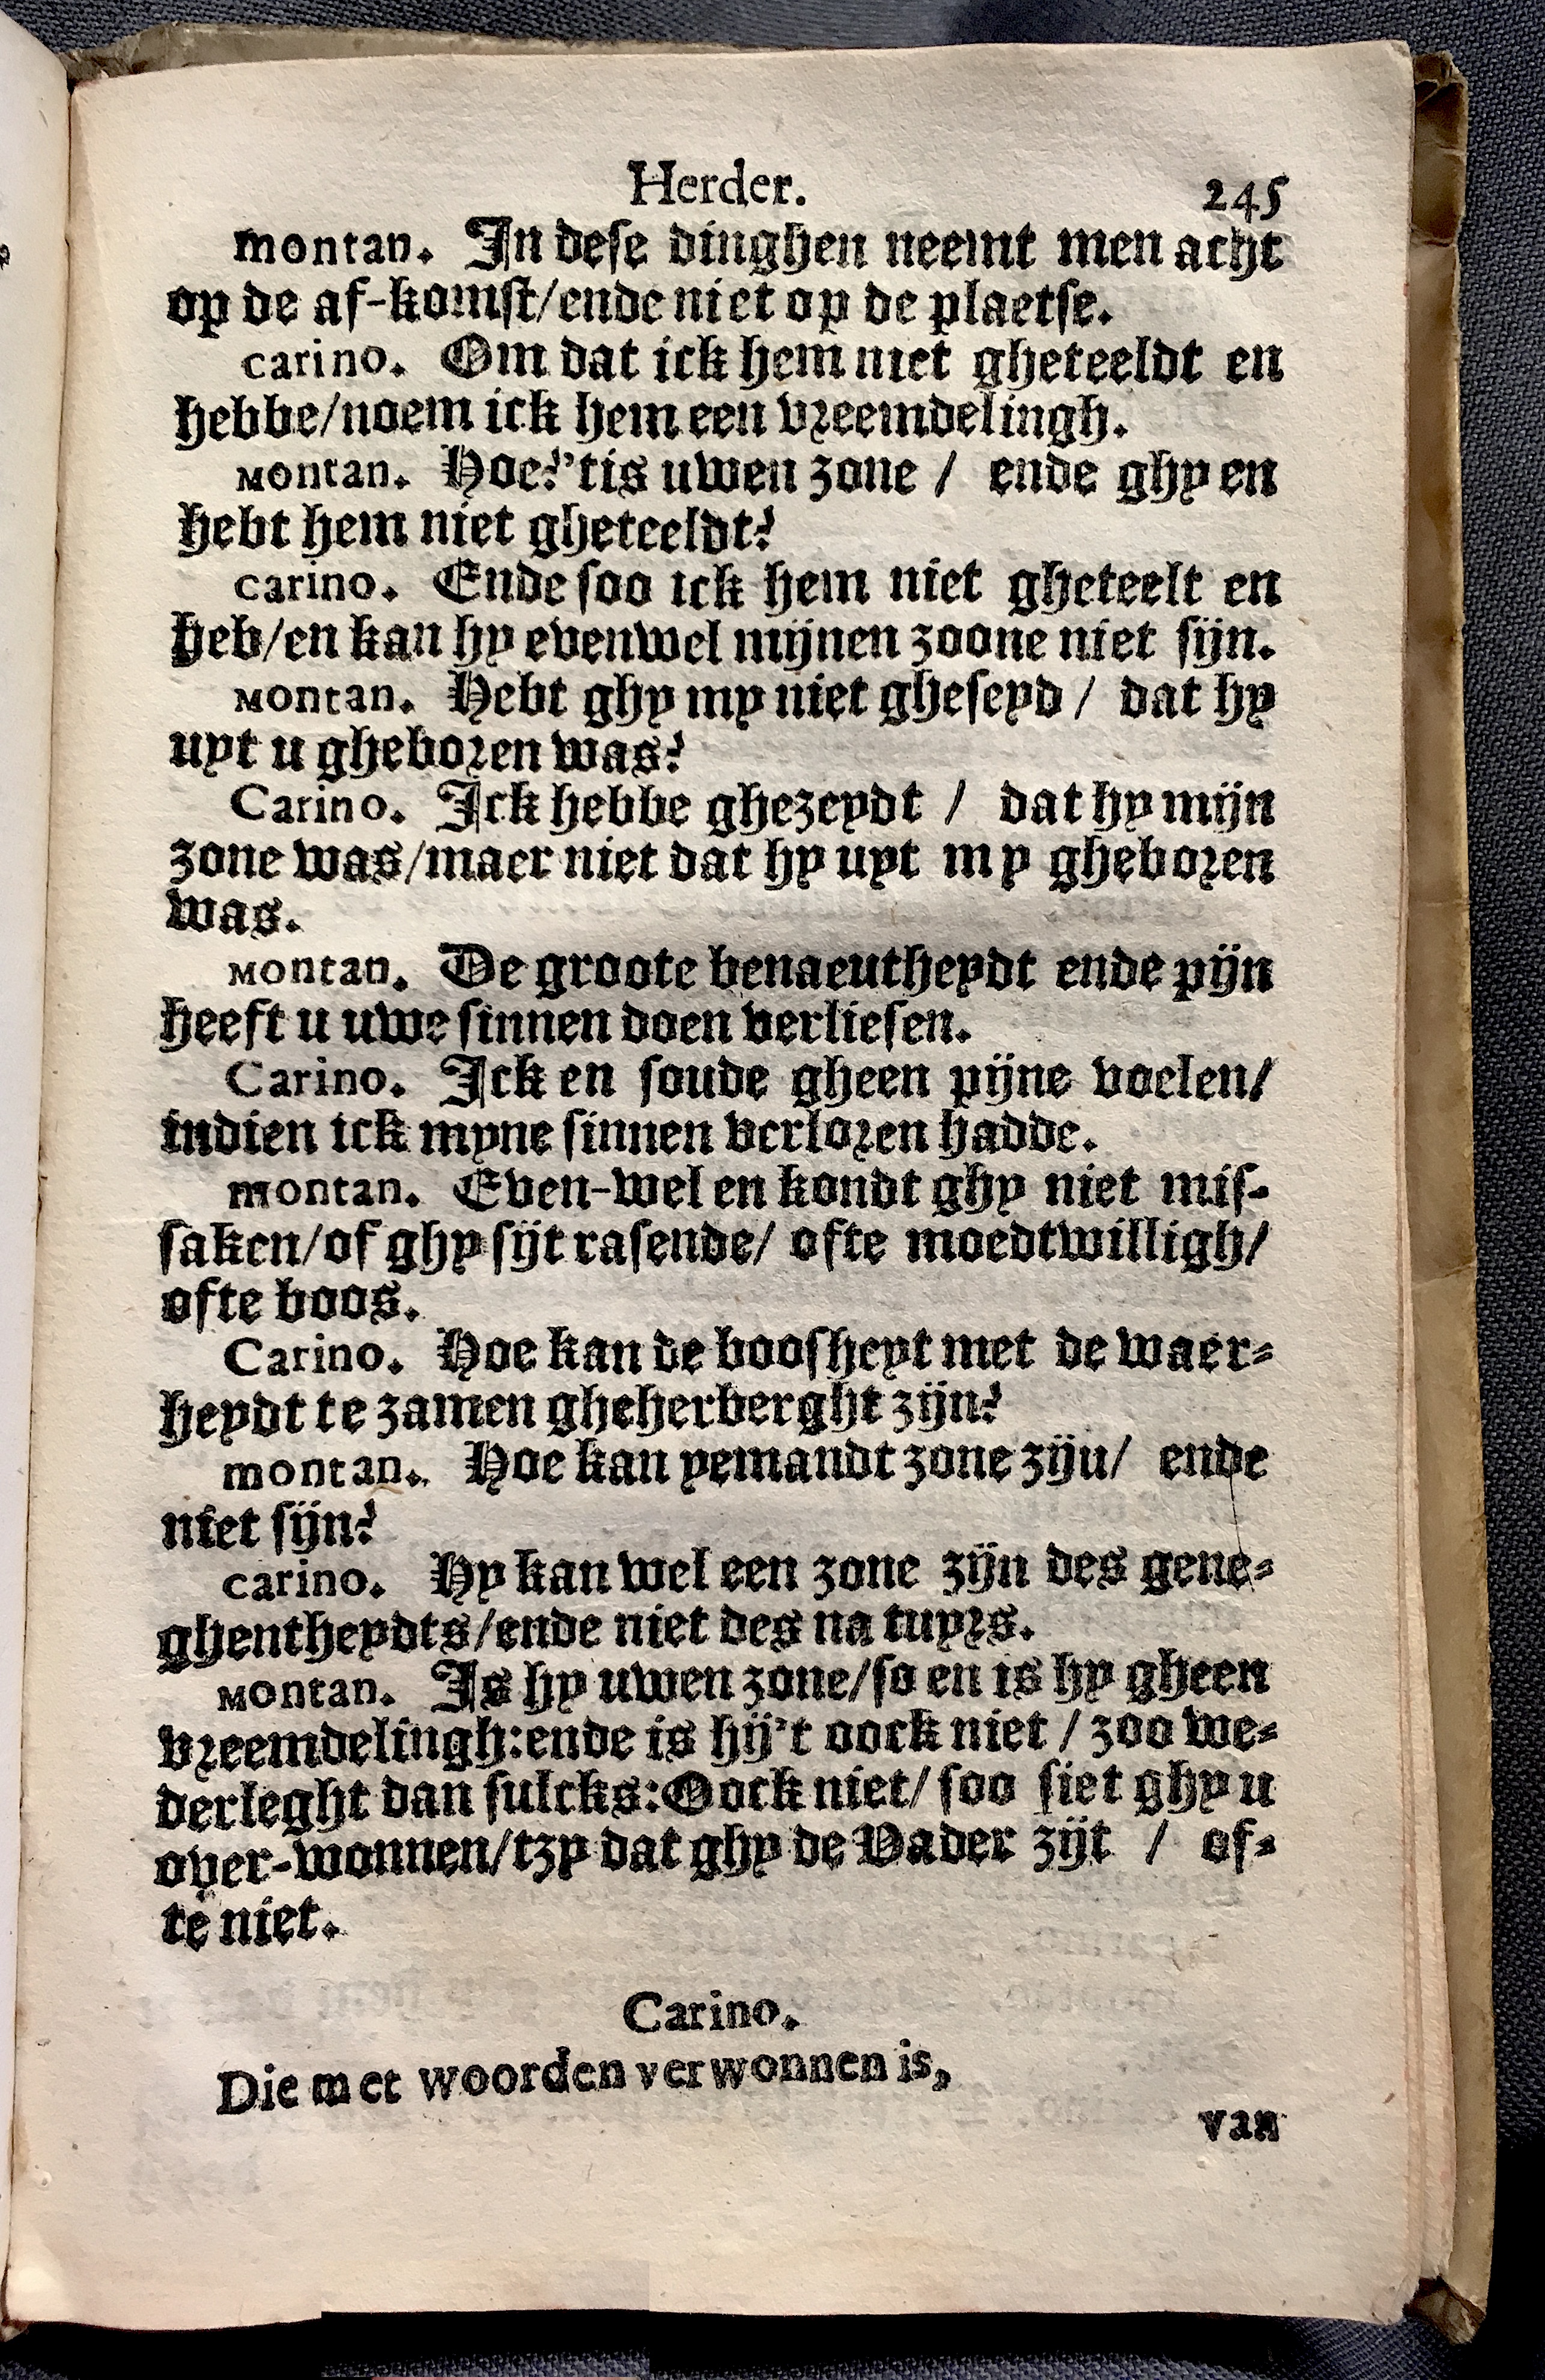 Herder. 245
montan. In dese dinghen neemt men acht
op de af-komst/ende niet op de plaetse.
carino. Om dat ick hem niet gheteeldt en
hebbe/noem ick hem een vreemdelingh.
Montan. Hoe?'tis uwen zone / ende ghy en
hebt hem niet gheteeldt?
carino. Ende soo ick hem niet gheteelt en
heb/en kan hy evenwel mijnen zoone niet sijn.
Montan. Hebt ghy my niet gheseyd / dat hy
uyt u gheboren was?
Carino. Ick hebbe ghezeydt / dat hy mijn
zone was/maer niet dat hy uyt my gheboren
was.
Montan. De groote benaeutheydt ende pijn
heeft u uwe sinnen doen verliesen.
Carino. Ick en soude gheen pijne voelen/
indien ick myne sinnen verloren hadde.
montan. Even-wel en kondt ghy niet mis-
saken/of ghy sijt rasende/ ofte moedtwilligh/
ofte boos.
Carino. Hoe kan de boosheyt met de waer-
heydt te zamen gheherberght zijn?
montan. Hoe kan yemandt zone zijn/ ende
niet sijn?
carino. Hy kan wel een zone zijn des gene-
ghentheydts/ende niet des na tuyrs.
Montan. Is hy uwen zone/so en is hy gheen
vreemdelingh:ende is hij't oock niet / zoo we-
derleght dan sulcks:Oock niet/ soo siet ghy u
over-wonnen/tzy dat ghy de Vader zijt / of-
te niet.
Carino.
Die met woorden verwonnen is,
van